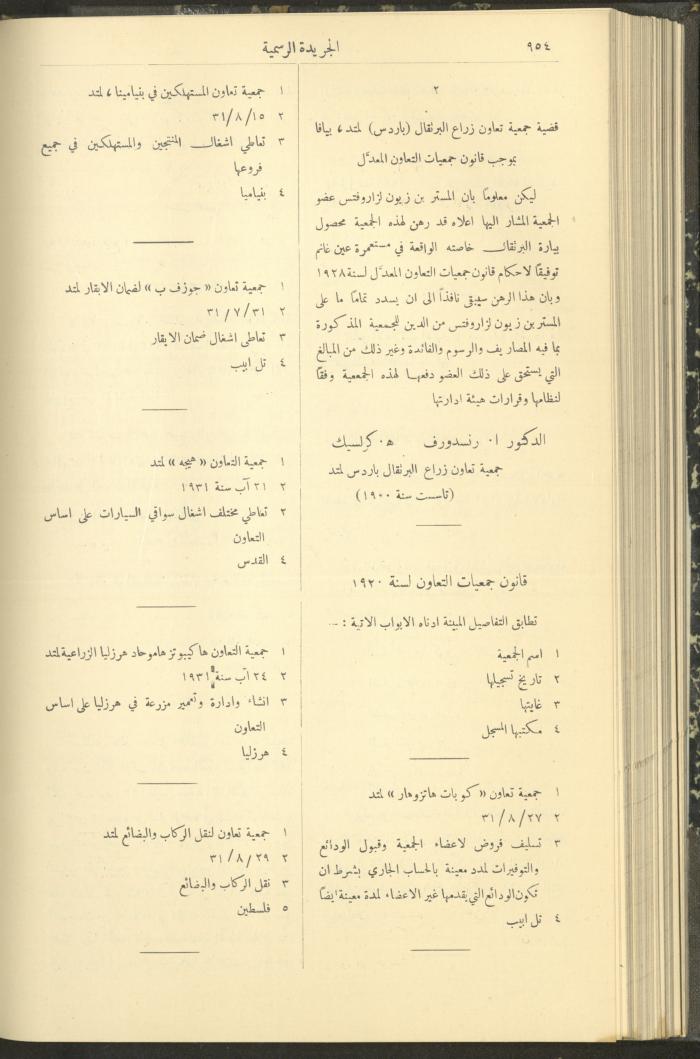 ٩٥٤
الجريدة الرسمية
٢
قضية جمعية تعاون زراع البرتقال (باردس) لمتد، بيافا
بموجب قانون جمعيات التعاون المعدَّل
ليكن معلومًا بان المستر بن زيون لزاروفتس عضو
الجمعية المشار اليها اعلاه قد رهن لهذه الجمعية محصول
بيارة البرتقال خاصته الواقعة في مستعمرة عين غانم
توفيقًا لاحكام قانون جمعيات التعاون المعدَّل لسنة ١٩٢٨
وبان هذا الرهن سيبقى نافذاً الى ان يسدد تمامًا ما على
المستر بن زيون لزاروفتس من الدين للجمعية المذكورة
بما فيه المصاريف والرسوم والفائدة وغير ذلك من المبالغ
التي يستحق على ذلك العضو دفعها لهذه الجمعية وفقًا
لنظامها وقرارات هيئة ادارتها
الدكتور ا. رنسدورف ه. كرلسيك
جمعية تعاون زراع البرتقال باردس لمتد
(تاسست سنة ١٩٠٠)
قانون جمعيات التعاون لسنة ١٩٢٠
تطابق التفاصيل المبينة ادناه الابواب الاتية : —
١ اسم الجمعية
٢ تاريخ تسجيلها
٣ غايتها
٤ مكتبها المسجل
١ جمعية تعاون « كوبات هاتزوهار » لمتد
٢ ٣١/٨/٢٧
٣ تسليف قروض لاعضاء الجمعية وقبول الودائع
والتوفيرات لمدد معينة بالحساب الجاري بشرط ان
تكون الودائع التي يقدمها غير الاعضاء لمدة معينة ايضًا
٤ تل ابيب
١ جمعية تعاون المستهلكين في بنيامينا، لمتد
٢ ٣١/٨/١٥
٣ تعاطي اشغال المنتجين والمستهلكين في جميع
فروعها
٤ بنياميا
١ جمعية تعاون « جوزف ب » لضمان الابقار لمتد
٢ ٣١/٧/٣١
٣ تعاطى اشغال ضمان الابقار
٤ تل ابيب
١ جمعية التعاون « هيجه » لمتد
٢ ٢١ آب سنة ١٩٣١
٢ تعاطي مختلف اشغال سواقي السيارات على اساس
التعاون
٤ القدس
١ جمعية التعاون هاكيبوتز هاموحاد هرزليا الزراعية لمتد
٢ ٢٤ آب سنة ١٩٣١
٣ انشاء وادارة وتعمير مزرعة في هرزليا على اساس
التعاون
٤ هرزليا
١ جمعية تعاون لنقل الركاب والبضائع لمتد
٢ ٣١/٨/٢٩
٣ نقل الركاب والبضائع
٥ فلسطين